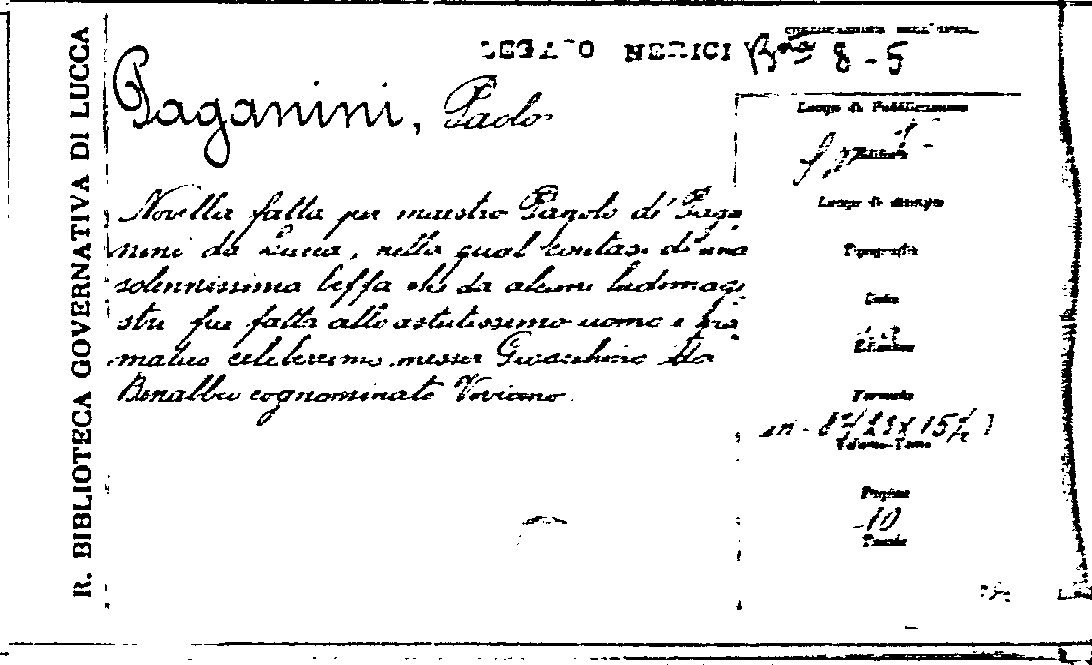 R. BIBLIOTECA GOVERNATIVA DI LUCCA
LEGATO NERICI
COLLOCAZIONE DELL'OPERA
8-5
Paganini, Paolo
Novella fatta per maestro Pagolo di Paga
nini da Lucca, nella qual contasi di una
solennissima beffa che da alcuni ludimagi
stri fue fatta allo astutissimo uomo e
celeberrimo messer Gioacchino da
cognominato Viviano.
Luogo di Pubblicazione
Editore
Luogo di stampa
Tipografia
Data
Edizione
Formato
in-8°
Volume-Tomo
Pagine
10
Tavole